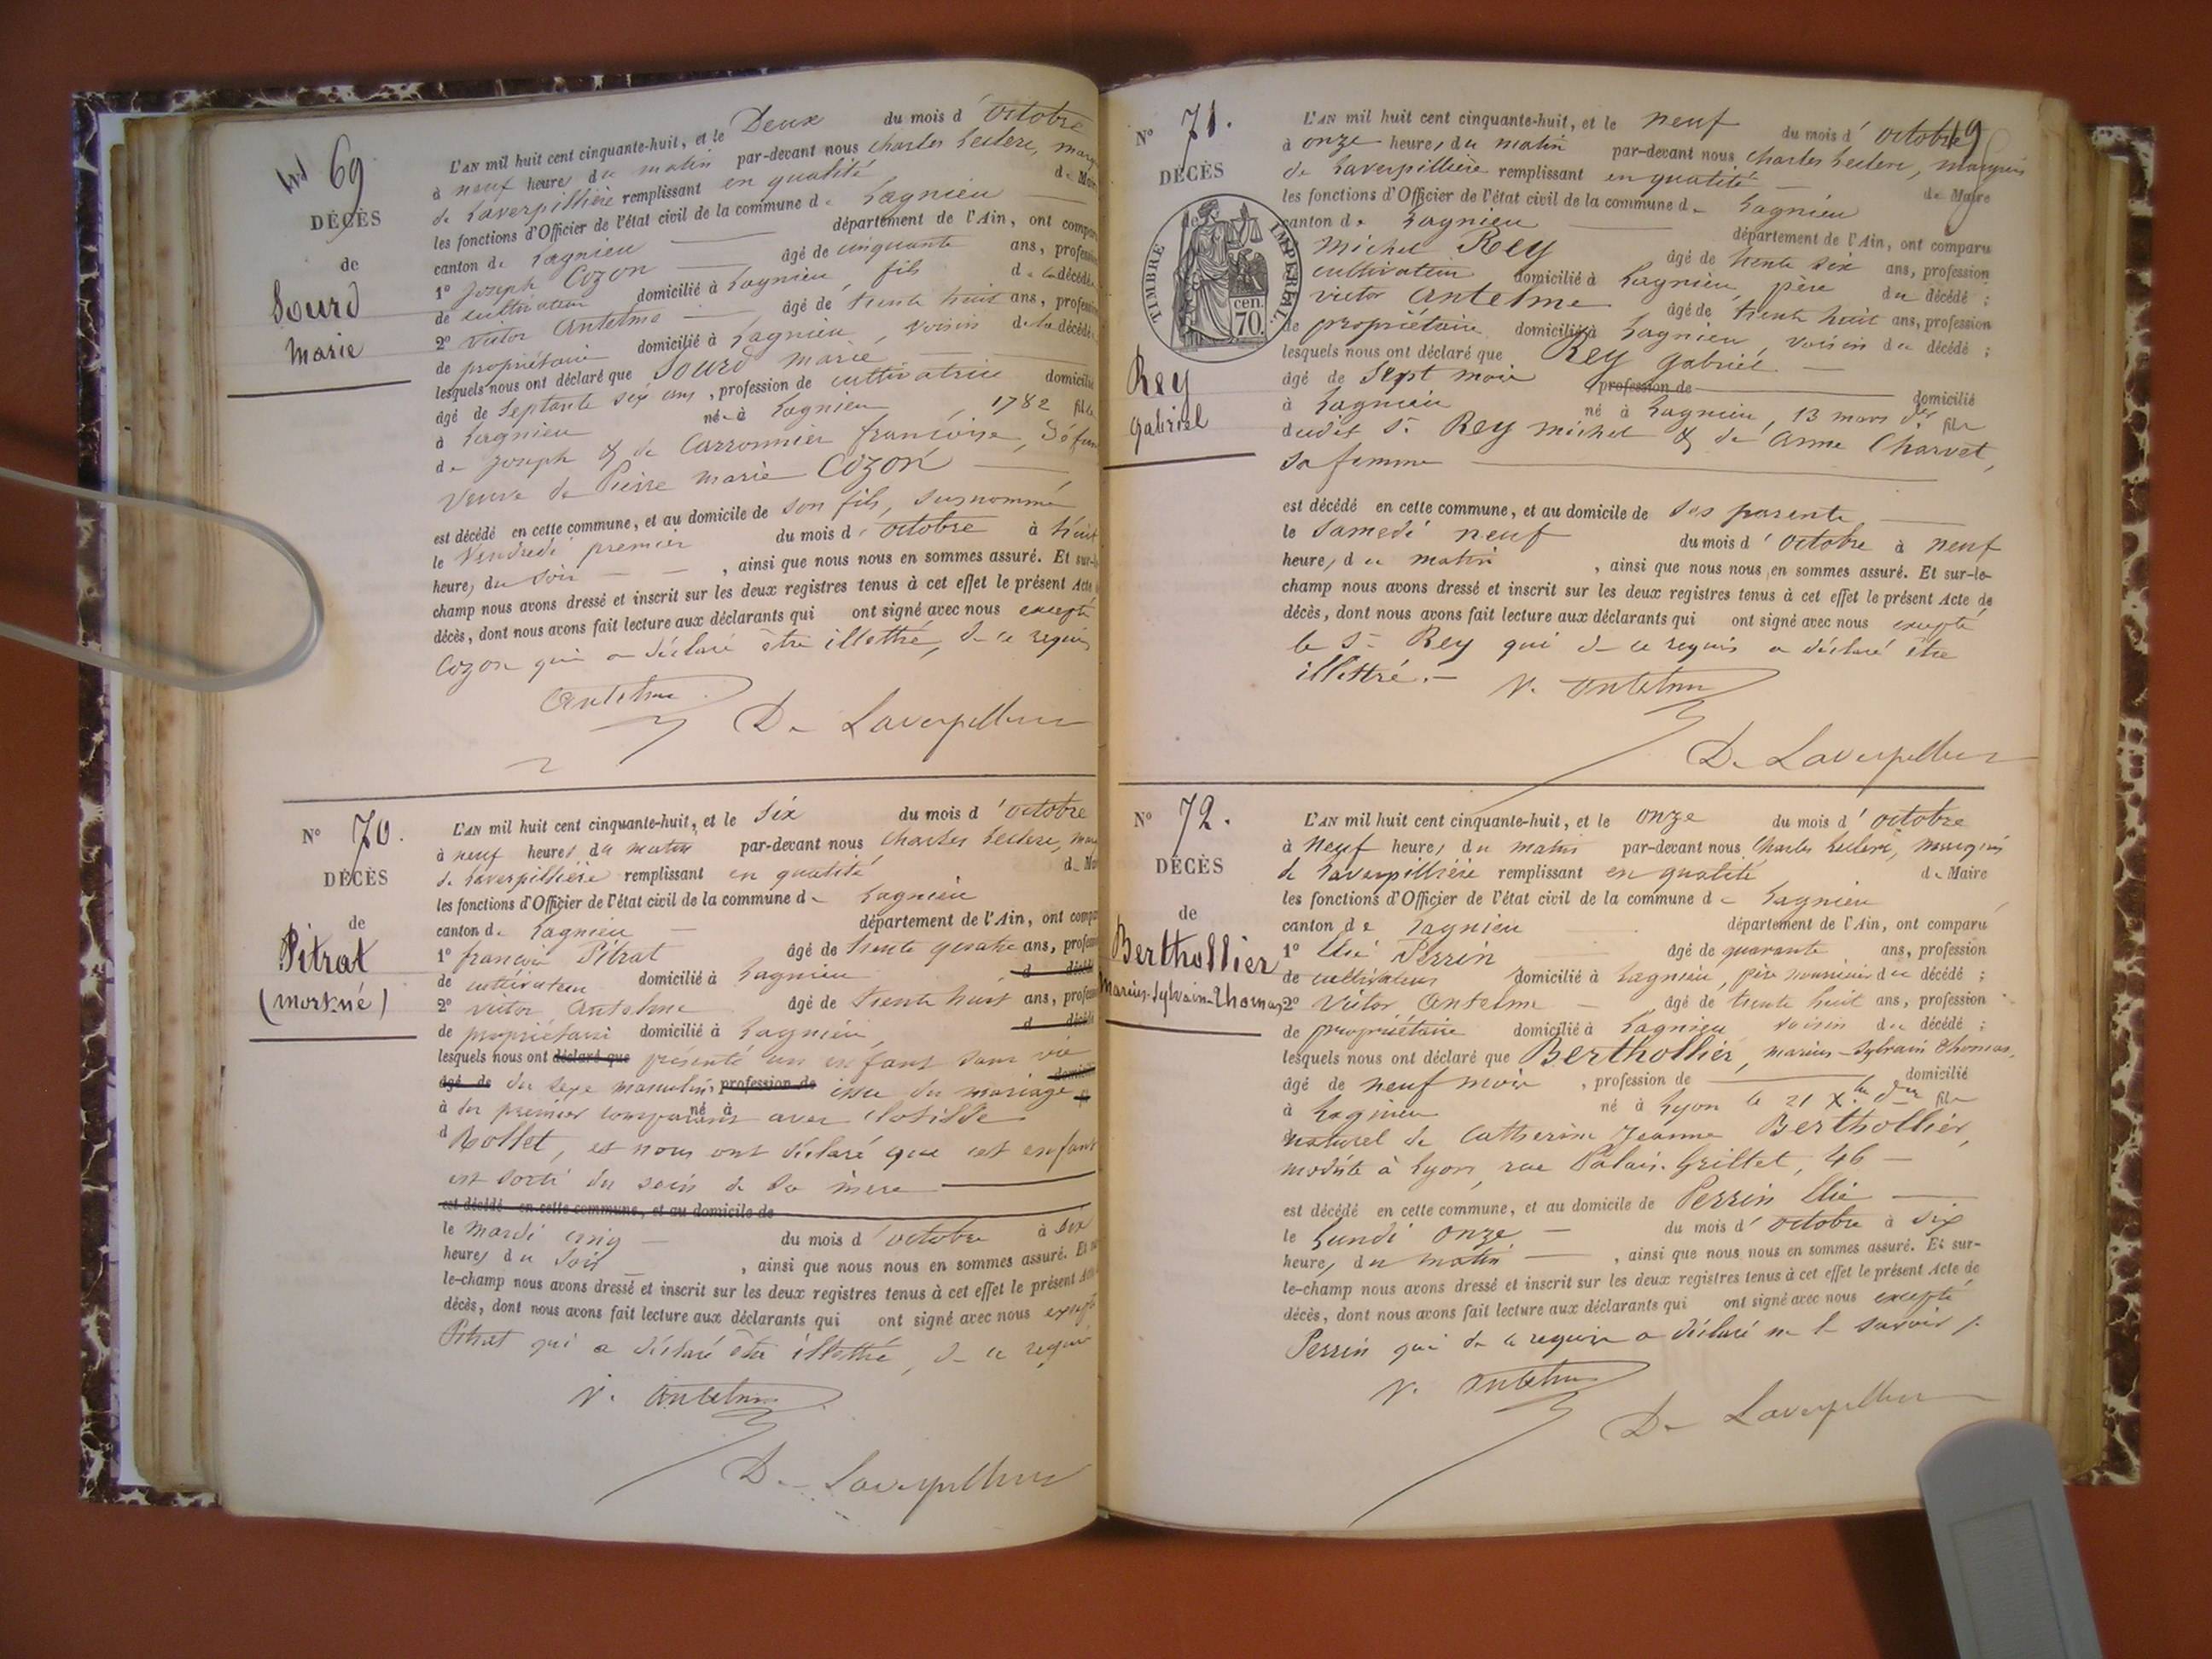 Nº 69
DÉCÈS
de
Sourd
Marie
L'AN mil huit cent cinquante-huit, et le Deux du mois d'octobre
à neuf heures du matin par-devant nous Charles Leclerc, marq
de Laverpillière remplissant en qualité de Mai
les fonctions d'Officier de l'état civil de la commune de Lagnieu
canton de Lagnieu département de l'Ain, ont compar
1º Joseph Cozon âgé de cinquante ans, profession
de cultivateur domicilié à Lagnieu fils de la décédé
2º Victor Antelme âgé de trente huit ans, profession
de propriétaire domicilié à Lagnieu, voisin de la décédé
lesquels nous ont déclaré que Sourd Marie
âgé de Septante six ans, profession de cultivatrice domicilié
à Lagnieu né à Lagnieu 1782 fille
de Joseph & de Carronnier françoise, Défun
Veuve de Pierre Marie Cozon
est décédé en cette commune, et au domicile de son fils, susnommé
le Vendredi premier du mois d'octobre à huit
heures du Soir, ainsi que nous nous en sommes assuré. Et sur-le
champ nous avons dressé et inscrit sur les deux registres tenus à cet effet le présent Acte
décès, dont nous avons fait lecture aux déclarants qui ont signé avec nous excepté
Cozon qui a déclaré être illettré, de ce requis
Antelme
De Laverpilliere
Nº 70.
DÉCÈS
de
Pitrat
(mort-né)
L'AN mil huit cent cinquante-huit, et le Six du mois d'octobre
à neuf heures du matin par-devant nous Charles Leclerc, mar
de Laverpillière remplissant en qualité de Ma
les fonctions d'Officier de l'état civil de la commune de Lagnieu
canton de Lagnieu département de l'Ain, ont compa
1º françois Pitrat âgé de trente quatre ans, profession
de cultivateur domicilié à Lagnieu d décédé
2º Victor Antelme âgé de trente huit ans, profession
de propriétaire domicilié à Lagnieu d décédé
lesquels nous ont déclaré que présenté un enfant sans vie
âgé de du sexe masculin, profession de issu du mariage domicilié
à du premier comparant né à avec Clotilde
d Rollet, et nous ont déclaré que cet enfant
est sorti du sein de sa mère
est décédé en cette commune, et au domicile de
le mardi cinq du mois d'octobre à six
heures du soir, ainsi que nous nous en sommes assuré. Et sur
le-champ nous avons dressé et inscrit sur les deux registres tenus à cet effet le présent Acte
décès, dont nous avons fait lecture aux déclarants qui ont signé avec nous excepté
Pitrat qui a déclaré être illettré, de ce requis
V. Antelme
De Laverpilliere
19
Nº 71.
DÉCÈS
de
TIMBRE IMPERIAL
70 cen.
Rey
Gabriel
L'AN mil huit cent cinquante-huit, et le neuf du mois d'octobre
à onze heures du matin par-devant nous Charles Leclerc, marquis
de Laverpillière remplissant en qualité de Maire
les fonctions d'Officier de l'état civil de la commune de Lagnieu
canton de Lagnieu département de l'Ain, ont comparu
Michel Rey âgé de trente six ans, profession
cultivateur domicilié à Lagnieu, père du décédé ;
Victor Antelme âgé de trente huit ans, profession
de propriétaire domicilié à Lagnieu, voisin du décédé ;
lesquels nous ont déclaré que Rey Gabriel
âgé de Sept mois profession de domicilié
à Lagnieu né à Lagnieu, 13 mars der fils
dudit Sr Rey Michel & de Anne Charvet,
sa femme
est décédé en cette commune, et au domicile de ses parents
le Samedi neuf du mois d'octobre à neuf
heures du matin, ainsi que nous nous en sommes assuré. Et sur-le-
champ nous avons dressé et inscrit sur les deux registres tenus à cet effet le présent Acte de
décès, dont nous avons fait lecture aux déclarants qui ont signé avec nous excepté
le Sr Rey qui de ce requis a déclaré être
illettré.
V. Antelme
De Laverpilliere
Nº 72.
DÉCÈS
de
Berthollier
Marius-Sylvain-Thomas
L'AN mil huit cent cinquante-huit, et le onze du mois d'octobre
à Neuf heures du matin par-devant nous Charles Leclerc, marquis
de Laverpillière remplissant en qualité de Maire
les fonctions d'Officier de l'état civil de la commune de Lagnieu
canton de Lagnieu département de l'Ain, ont comparu
1º Elie Perrin âgé de quarante ans, profession
de cultivateur domicilié à Lagnieu, père nourricier du décédé ;
2º Victor Antelme âgé de trente huit ans, profession
de propriétaire domicilié à Lagnieu voisin du décédé ;
lesquels nous ont déclaré que Berthollier, Marius-Sylvain Thomas,
âgé de neuf mois, profession de domicilié
à Lagnieu né à Lyon le 21 Xbre der fils
naturel de Catherine Jeanne Berthollier,
modiste à Lyon, rue Palais-Grillet, 46
est décédé en cette commune, et au domicile de Perrin Elie
le Lundi onze du mois d'octobre à six
heures du matin, ainsi que nous nous en sommes assuré. Et sur-
le-champ nous avons dressé et inscrit sur les deux registres tenus à cet effet le présent Acte de
décès, dont nous avons fait lecture aux déclarants qui ont signé avec nous excepté
Perrin qui de ce requis a déclaré ne le savoir
V. Antelme
De Laverpilliere